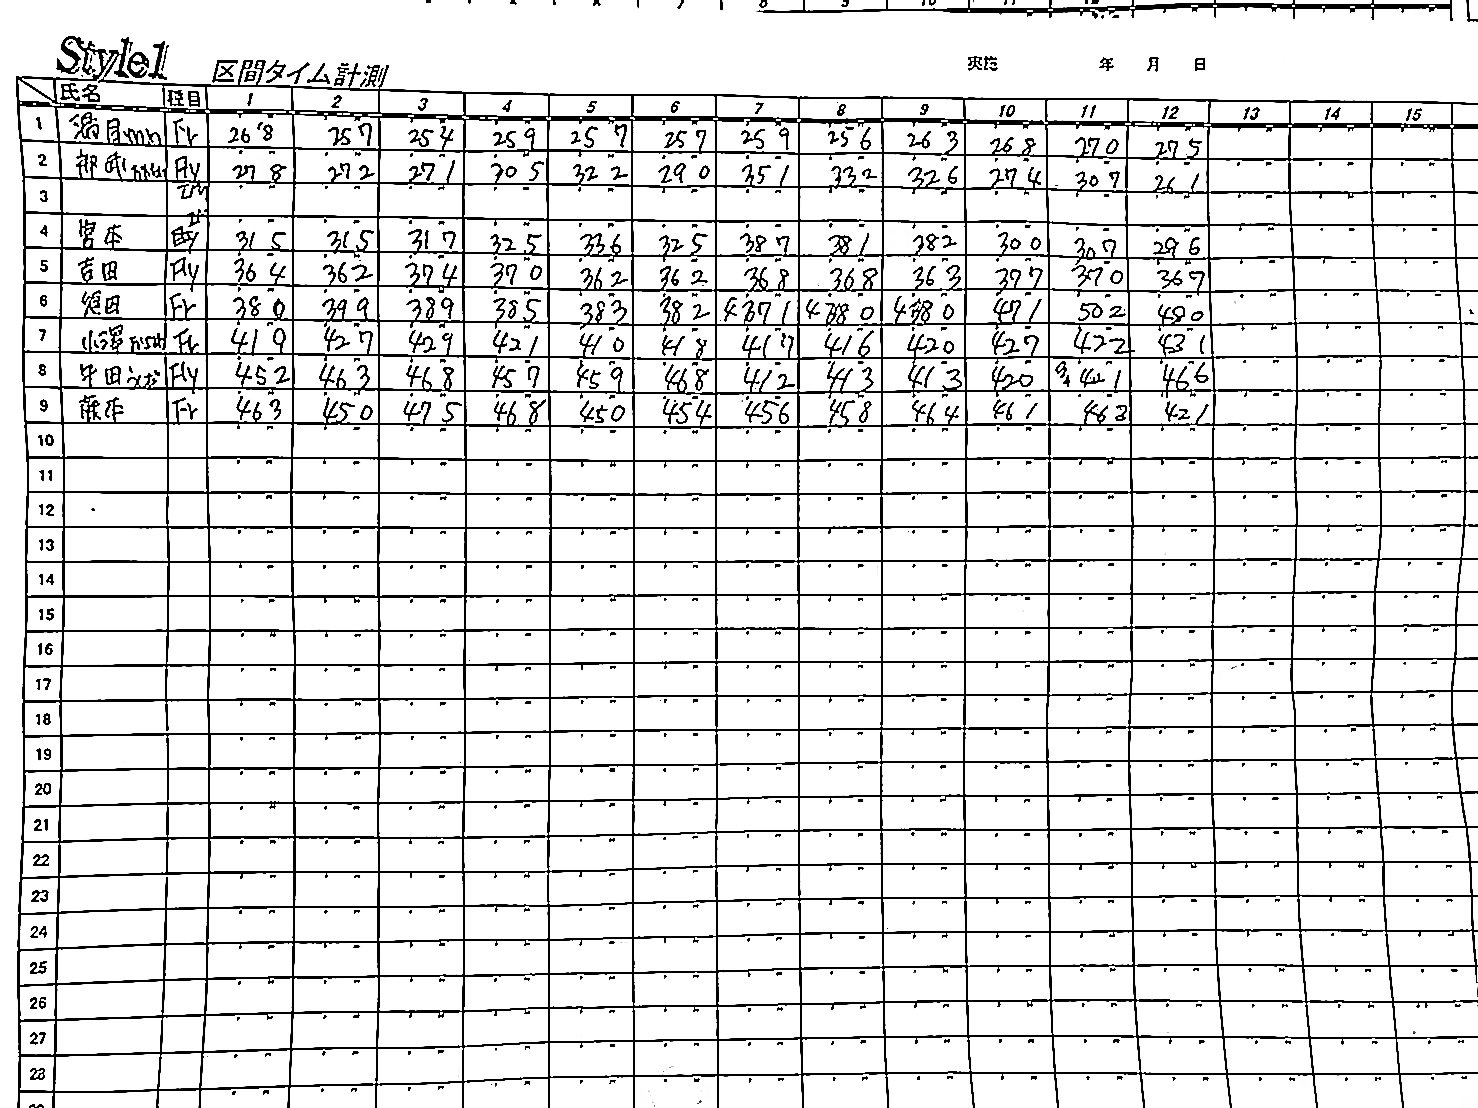 Style1 区間タイム計測 実施 年 月 日
氏名 種目 1 2 3 4 5 6 7 8 9 10 11 12 13 14 15
1 Fr 26 8 25 7 25 4 25 9 25 7 25 7 25 9 25 6 26 3 26 8 27 0 27 5
2 Fly 27 8 27 2 27 1 30 5 32 2 29 0 35 1 33 2 32 6 27 4 30 7 26 1
3
4 宮本 31 5 31 5 31 7 32 5 33 6 32 5 38 7 38 1 38 2 30 0 30 7 29 6
5 吉田 Fly 36 4 36 2 37 4 37 0 36 2 36 2 36 8 36 8 36 3 37 7 37 0 36 7
6 Fr 38 0 39 9 38 9 38 5 38 3 38 2 37 1 38 0 38 0 47 1 50 2 48 0
7 小澤 Fr 41 9 42 7 42 9 42 1 41 0 41 8 41 7 41 6 42 0 42 7 42 2 43 1
8 牛田 Fly 45 2 46 3 46 8 45 7 45 9 46 8 41 2 41 3 41 3 42 0 42 1 46 6
9 藤本 Fr 46 3 45 0 47 5 46 8 45 0 45 4 45 6 45 8 46 4 46 1 46 3 42 1
10
11
12
13
14
15
16
17
18
19
20
21
22
23
24
25
26
27
28